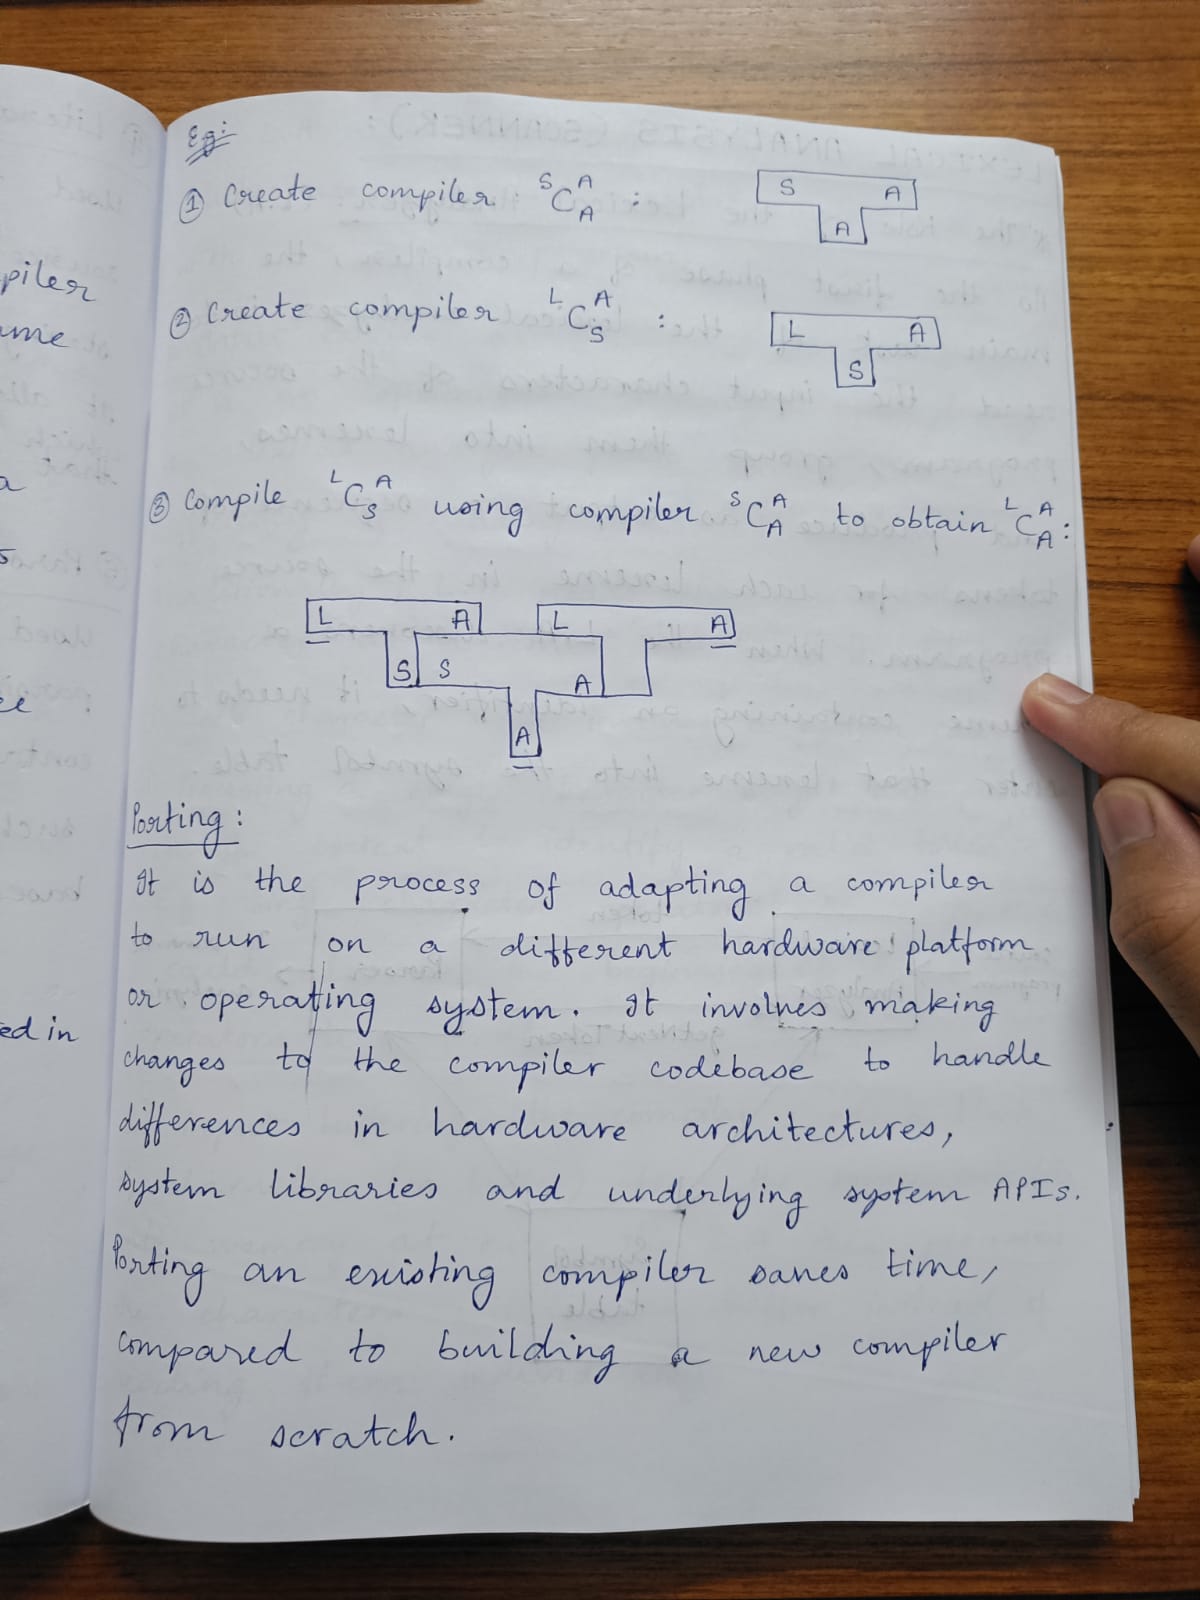 piler
ume
a
ed in
Eg:
① Create compiler ˢCₐᴬ : S A
A
② Create compiler ᴸCₛᴬ : L A
S
③ Compile ᴸCₛᴬ using compiler ˢCₐᴬ to obtain ᴸCₐᴬ :
L A L A
S S A
A
Porting:
It is the process of adapting a compiler
to run on a different hardware platform
or operating system. It involves making
changes to the compiler codebase to handle
differences in hardware architectures,
system libraries and underlying system APIs.
Porting an existing compiler saves time,
compared to building a new compiler
from scratch.